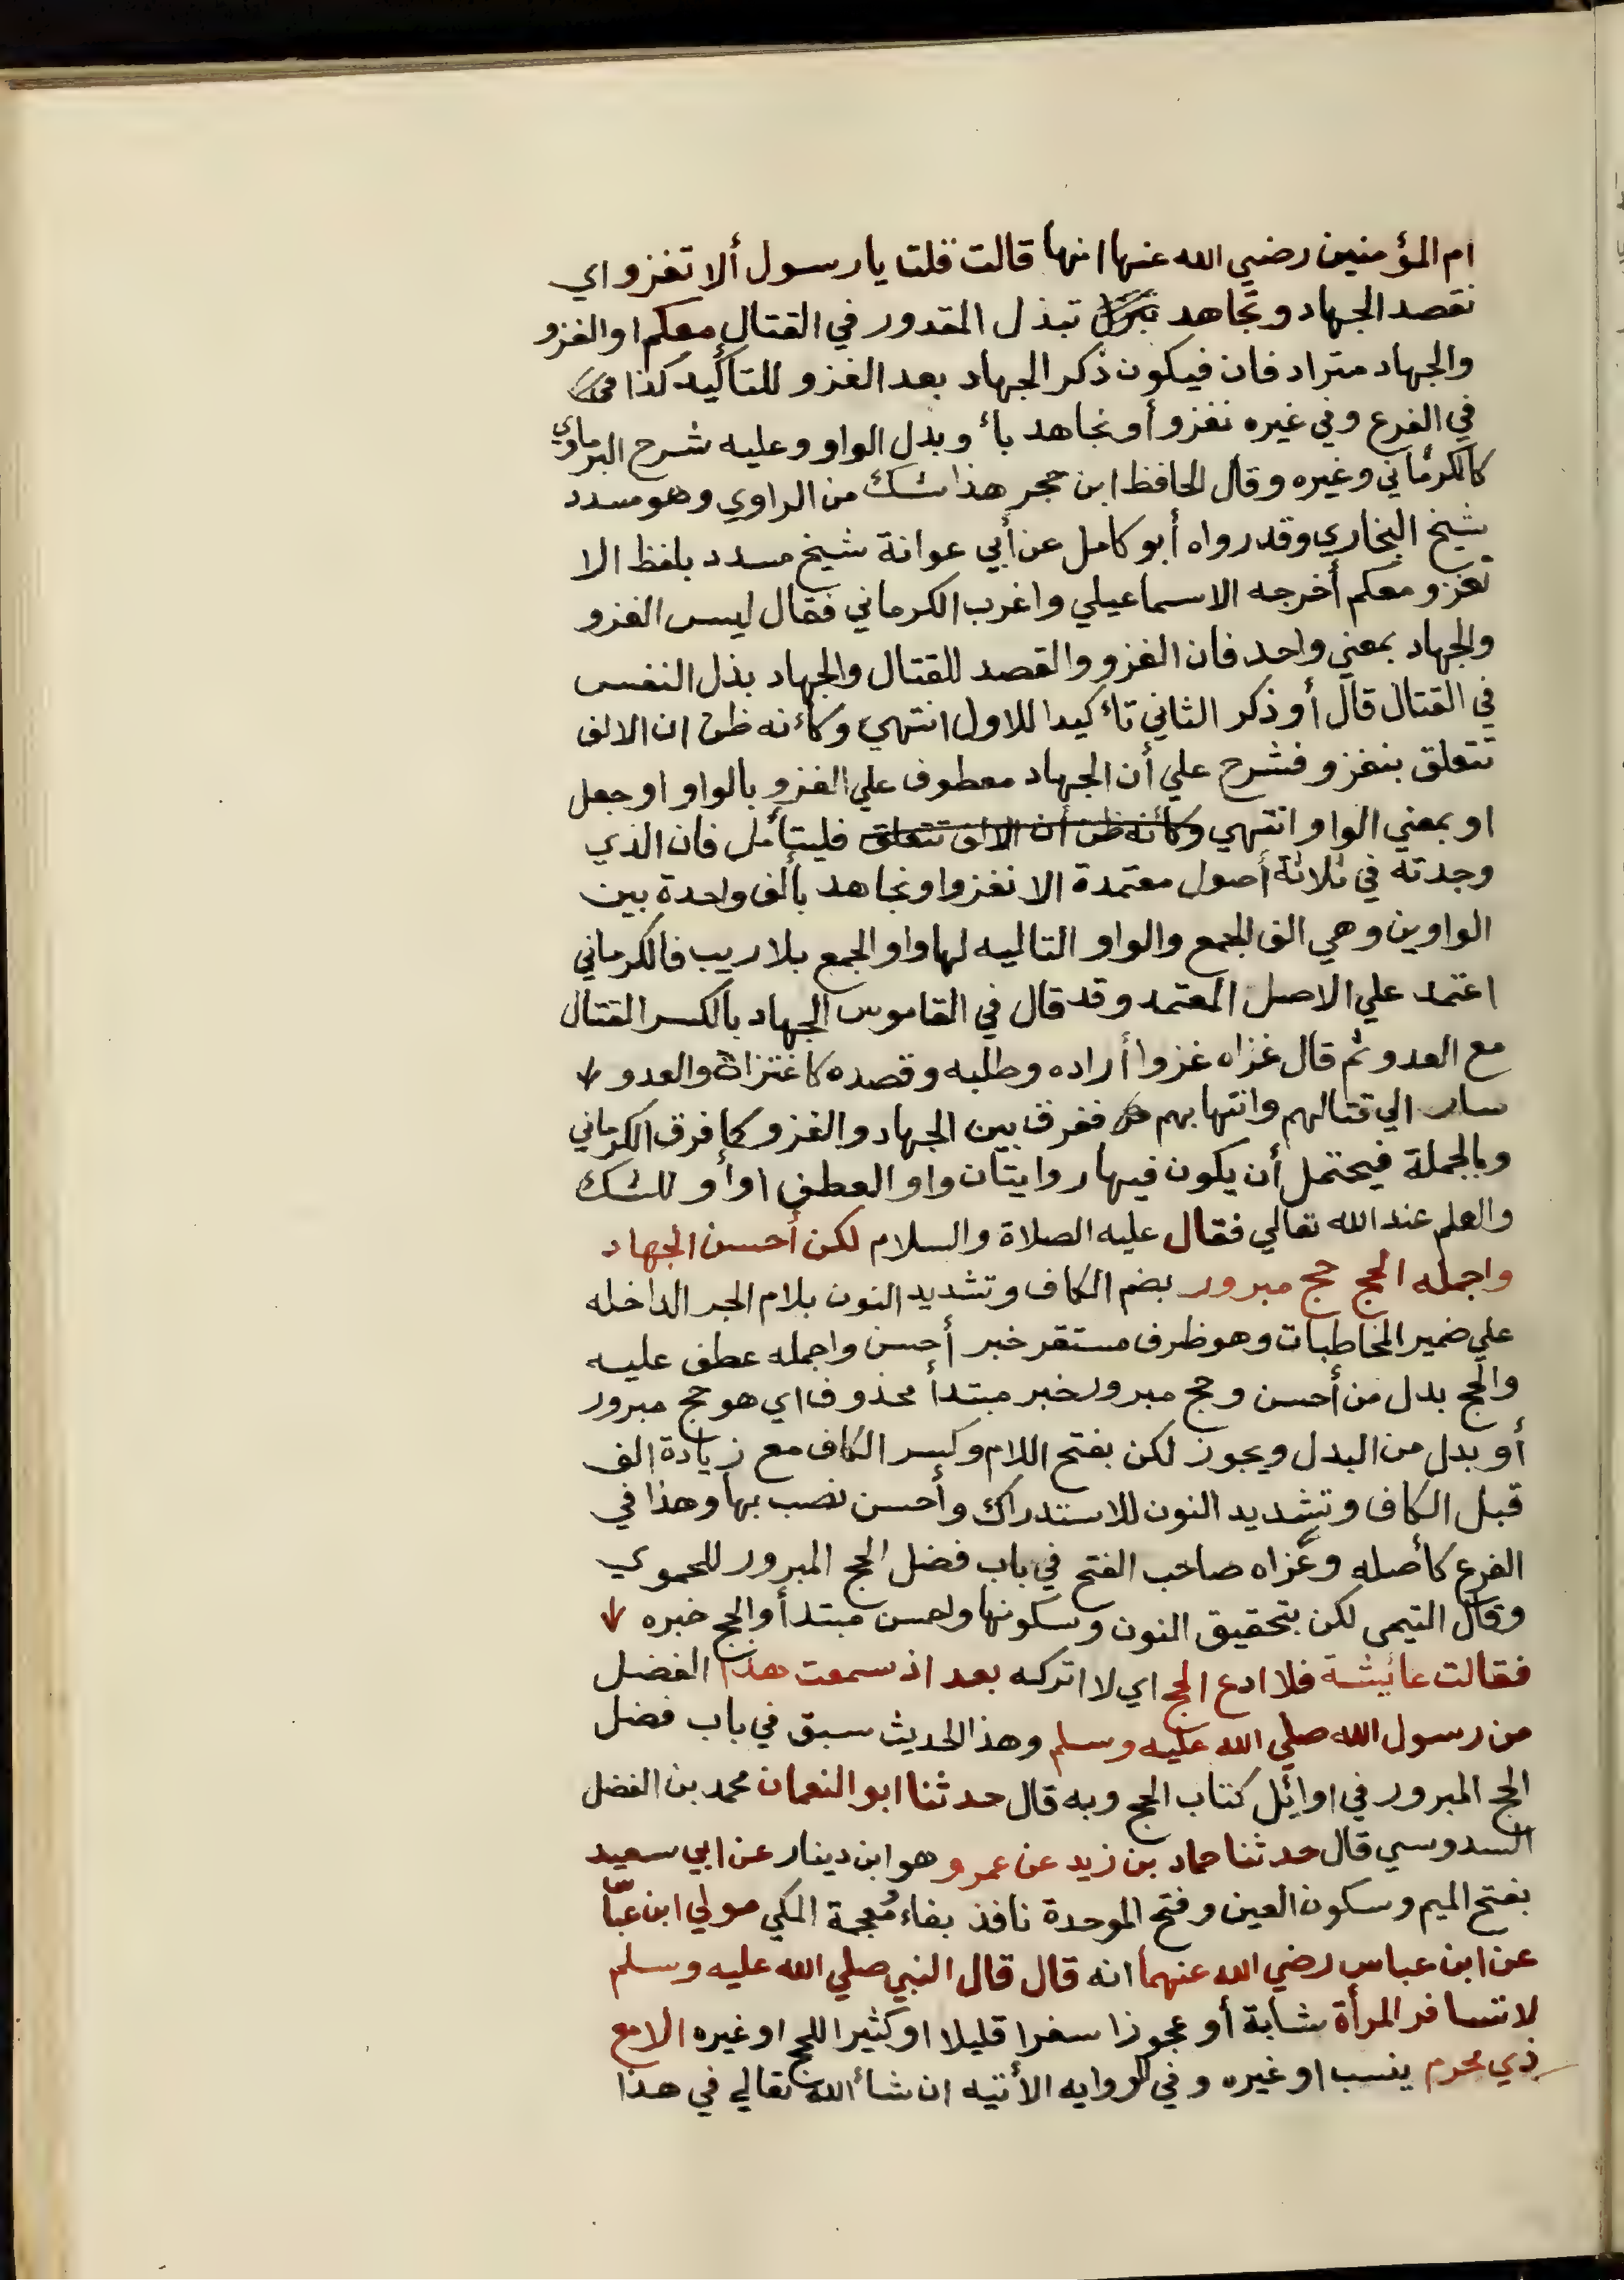 ام المؤمنين رضي الله عنها انها قالت قلت يا رسول ألا تغزو اي
نقصد الجهاد ونجاهد تبذل المقدور في القتال معكم او الغزو
والجهاد مترادفان فيكون ذكر الجهاد بعد الغزو للتأكيد كذا
في الفرع وفي غيره نغزو أو نجاهد بأ وبدل الواو وعليه شرح البرماوي
كالكرماني وغيره وقال الحافظ ابن حجر هذا شك من الراوي وهو مسدد
شيخ البخاري وقد رواه أبو كامل عن أبي عوانة شيخ مسدد بلفظ الا
نغزو معكم أخرجه الاسماعيلي واغرب الكرماني فقال ليس الغزو
والجهاد بمعني واحد فان الغزو والقصد للقتال والجهاد بذل النفس
في القتال قال أو ذكر الثاني تأكيدا للاول انتهي وكأنه ظن ان الالف
تتعلق بنغزو فشرح علي أن الجهاد معطوف علي الغزو بالواو او جعل
او بمعني الواو انتهي وكأنه ظن أن الالف تتعلق فليتأمل فان الذي
وجدته في ثلاثة أصول معتمدة الا نغزوا ونجاهد بألف واحدة بين
الواوين وهي الف الجمع والواو التاليه لها واو الجمع بلا ريب فالكرماني
اعتمد علي الاصل المعتمد وقد قال في القاموس الجهاد بالكسر القتال
مع العدو ثم قال غزاه غزوا أراده وطلبه وقصده كاغتزاه والعدو
سار الي قتالهم وانتهابهم ففرق بين الجهاد والغزو كما فرق الكرماني
وبالجملة فيحتمل أن يكون فيها روايتان واو العطف اوأو للشك
والعلم عند الله تعالي فقال عليه الصلاة والسلام لكن أحسن الجهاد
واجمله الحج حج مبرور بضم الكاف وتشديد النون بلام الجر الداخله
علي ضمير المخاطبات وهو ظرف مستقر خبر أحسن واجمله عطف عليه
والحج بدل من أحسن وحج مبرور خبر مبتدأ محذوف اي هو حج مبرور
أو بدل من البدل ويجوز لكن بفتح اللام وكسر الكاف مع زيادة الف
قبل الكاف وتشديد النون للاستدراك وأحسن نصب بها وهذا في
الفرع كأصله وعزاه صاحب الفتح في باب فضل الحج المبرور للحموي
وقال التيمي لكن بتحقيق النون وسكونها واحسن مبتدأ والحج خبره
فقالت عائشة فلا ادع الحج اي لا اتركه بعد اذ سمعت هذا الفضل
من رسول الله صلي الله عليه وسلم وهذا الحديث سبق في باب فضل
الحج المبرور في اوائل كتاب الحج وبه قال حدثنا ابو النعمان محمد بن الفضل
السدوسي قال حدثنا حماد بن زيد عن عمرو وهو ابن دينار عن ابي سعيد
بفتح الميم وسكون العين وفتح الموحدة نافذ بفاء ومعجمة المكي مولي ابن عباس
عن ابن عباس رضي الله عنهما انه قال قال النبي صلي الله عليه وسلم
لا تسافر المرأة شابة أو عجوزا سفرا قليلا او كثيرا للحج او غيره الا مع
ذي محرم بنسب او غيره وفي الروايه الأتيه ان شأ الله تعالي في هذا